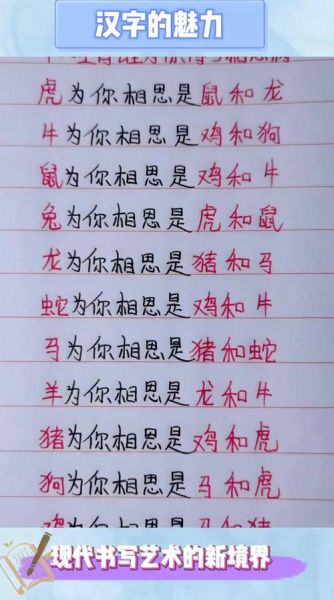 汉字的魅力
虎为你相思是鼠和龙
牛为你相思是鸡和狗
鼠为你相思是鸡和牛
兔为你相思是虎和鼠
龙为你相思是猪和马
蛇为你相思是鸡和牛
马为你相思是猪和蛇
羊为你相思是龙和牛
猪为你相思是鸡和虎
狗为你相思是马和虎
鸡为你相思是马和猪
现代书写艺术的新境界